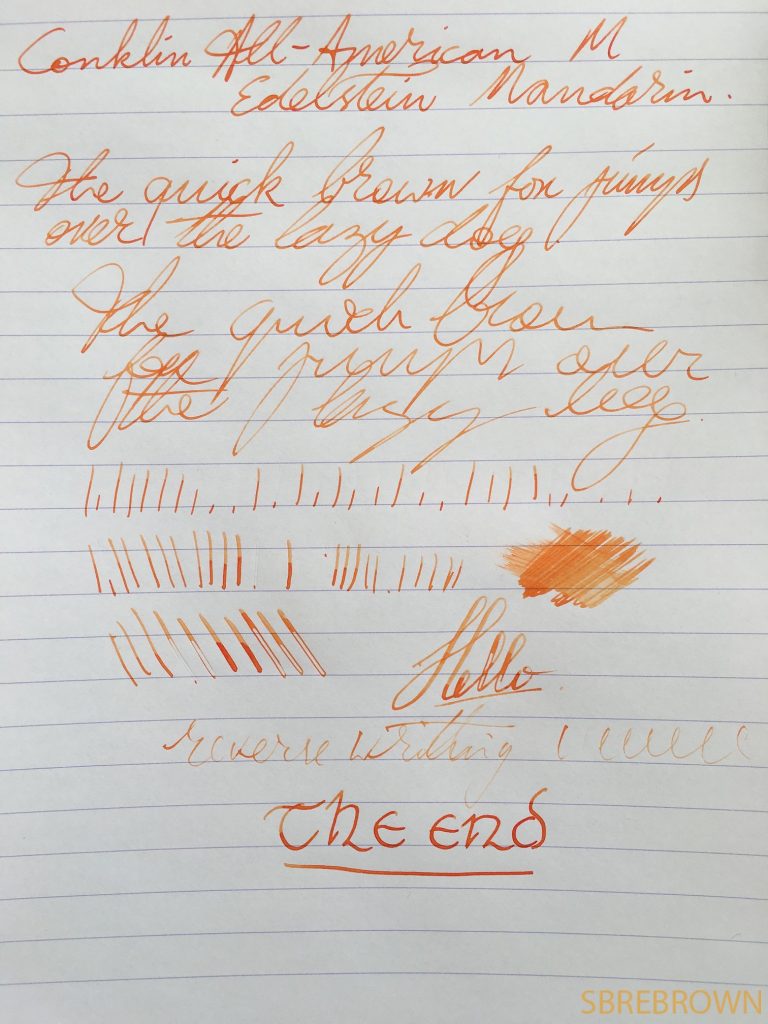 Conklin All-American M
Edelstein Mandarin.
The quick brown fox jumps
over the lazy dog.
The quick brown
fox jumps over
the lazy dog.
Hello.
reverse writing
The end
SBREBROWN